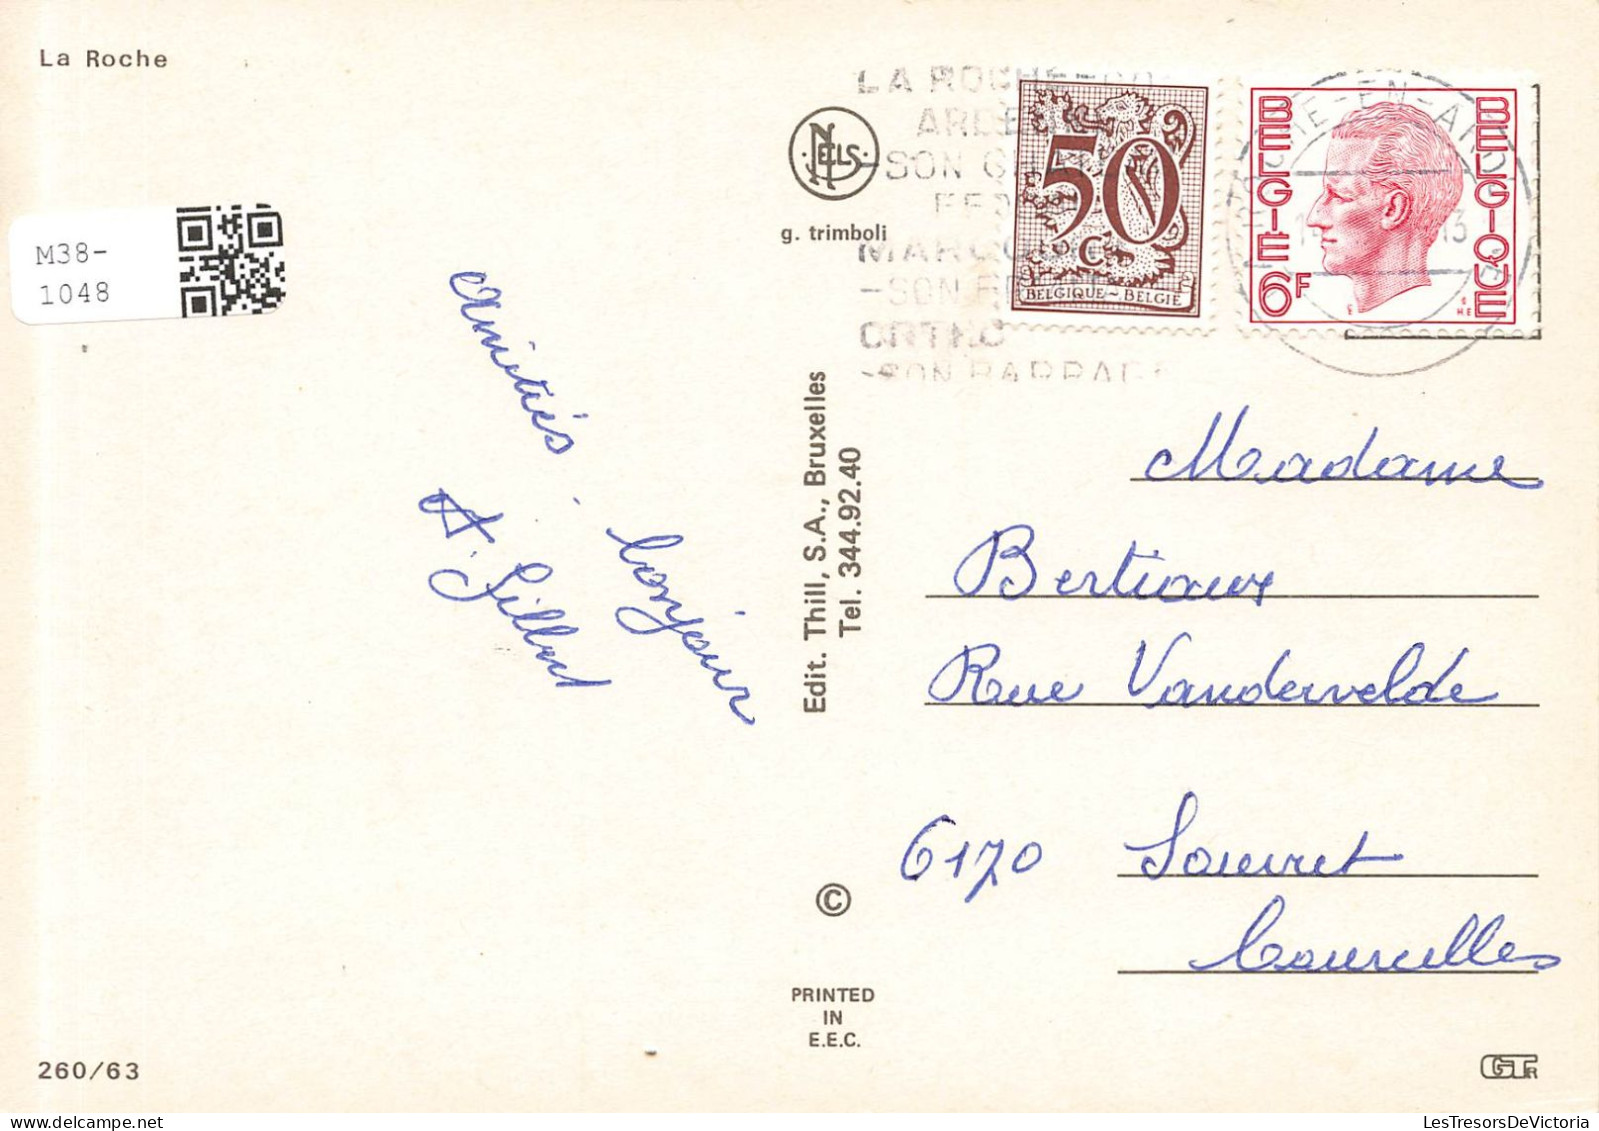 La Roche
M38-
1048
NELS
g. trimboli
LA ROCHE-EN-ARDENNE
13
50
C
BELGIQUE-BELGIE
BELGIE
BELGIQUE
6F
MARCOURT
ORTHO
-SON BARRAGE
Amitiés. bonjour
Edit. Thill, S.A., Bruxelles
Tel. 344.92.40
Madame
Bertiaux
Rue Vandervelde
6170 Souvret
Courcelles
©
PRINTED
IN
E.E.C.
260/63
GTR
LesTresorsDeVictoria.com